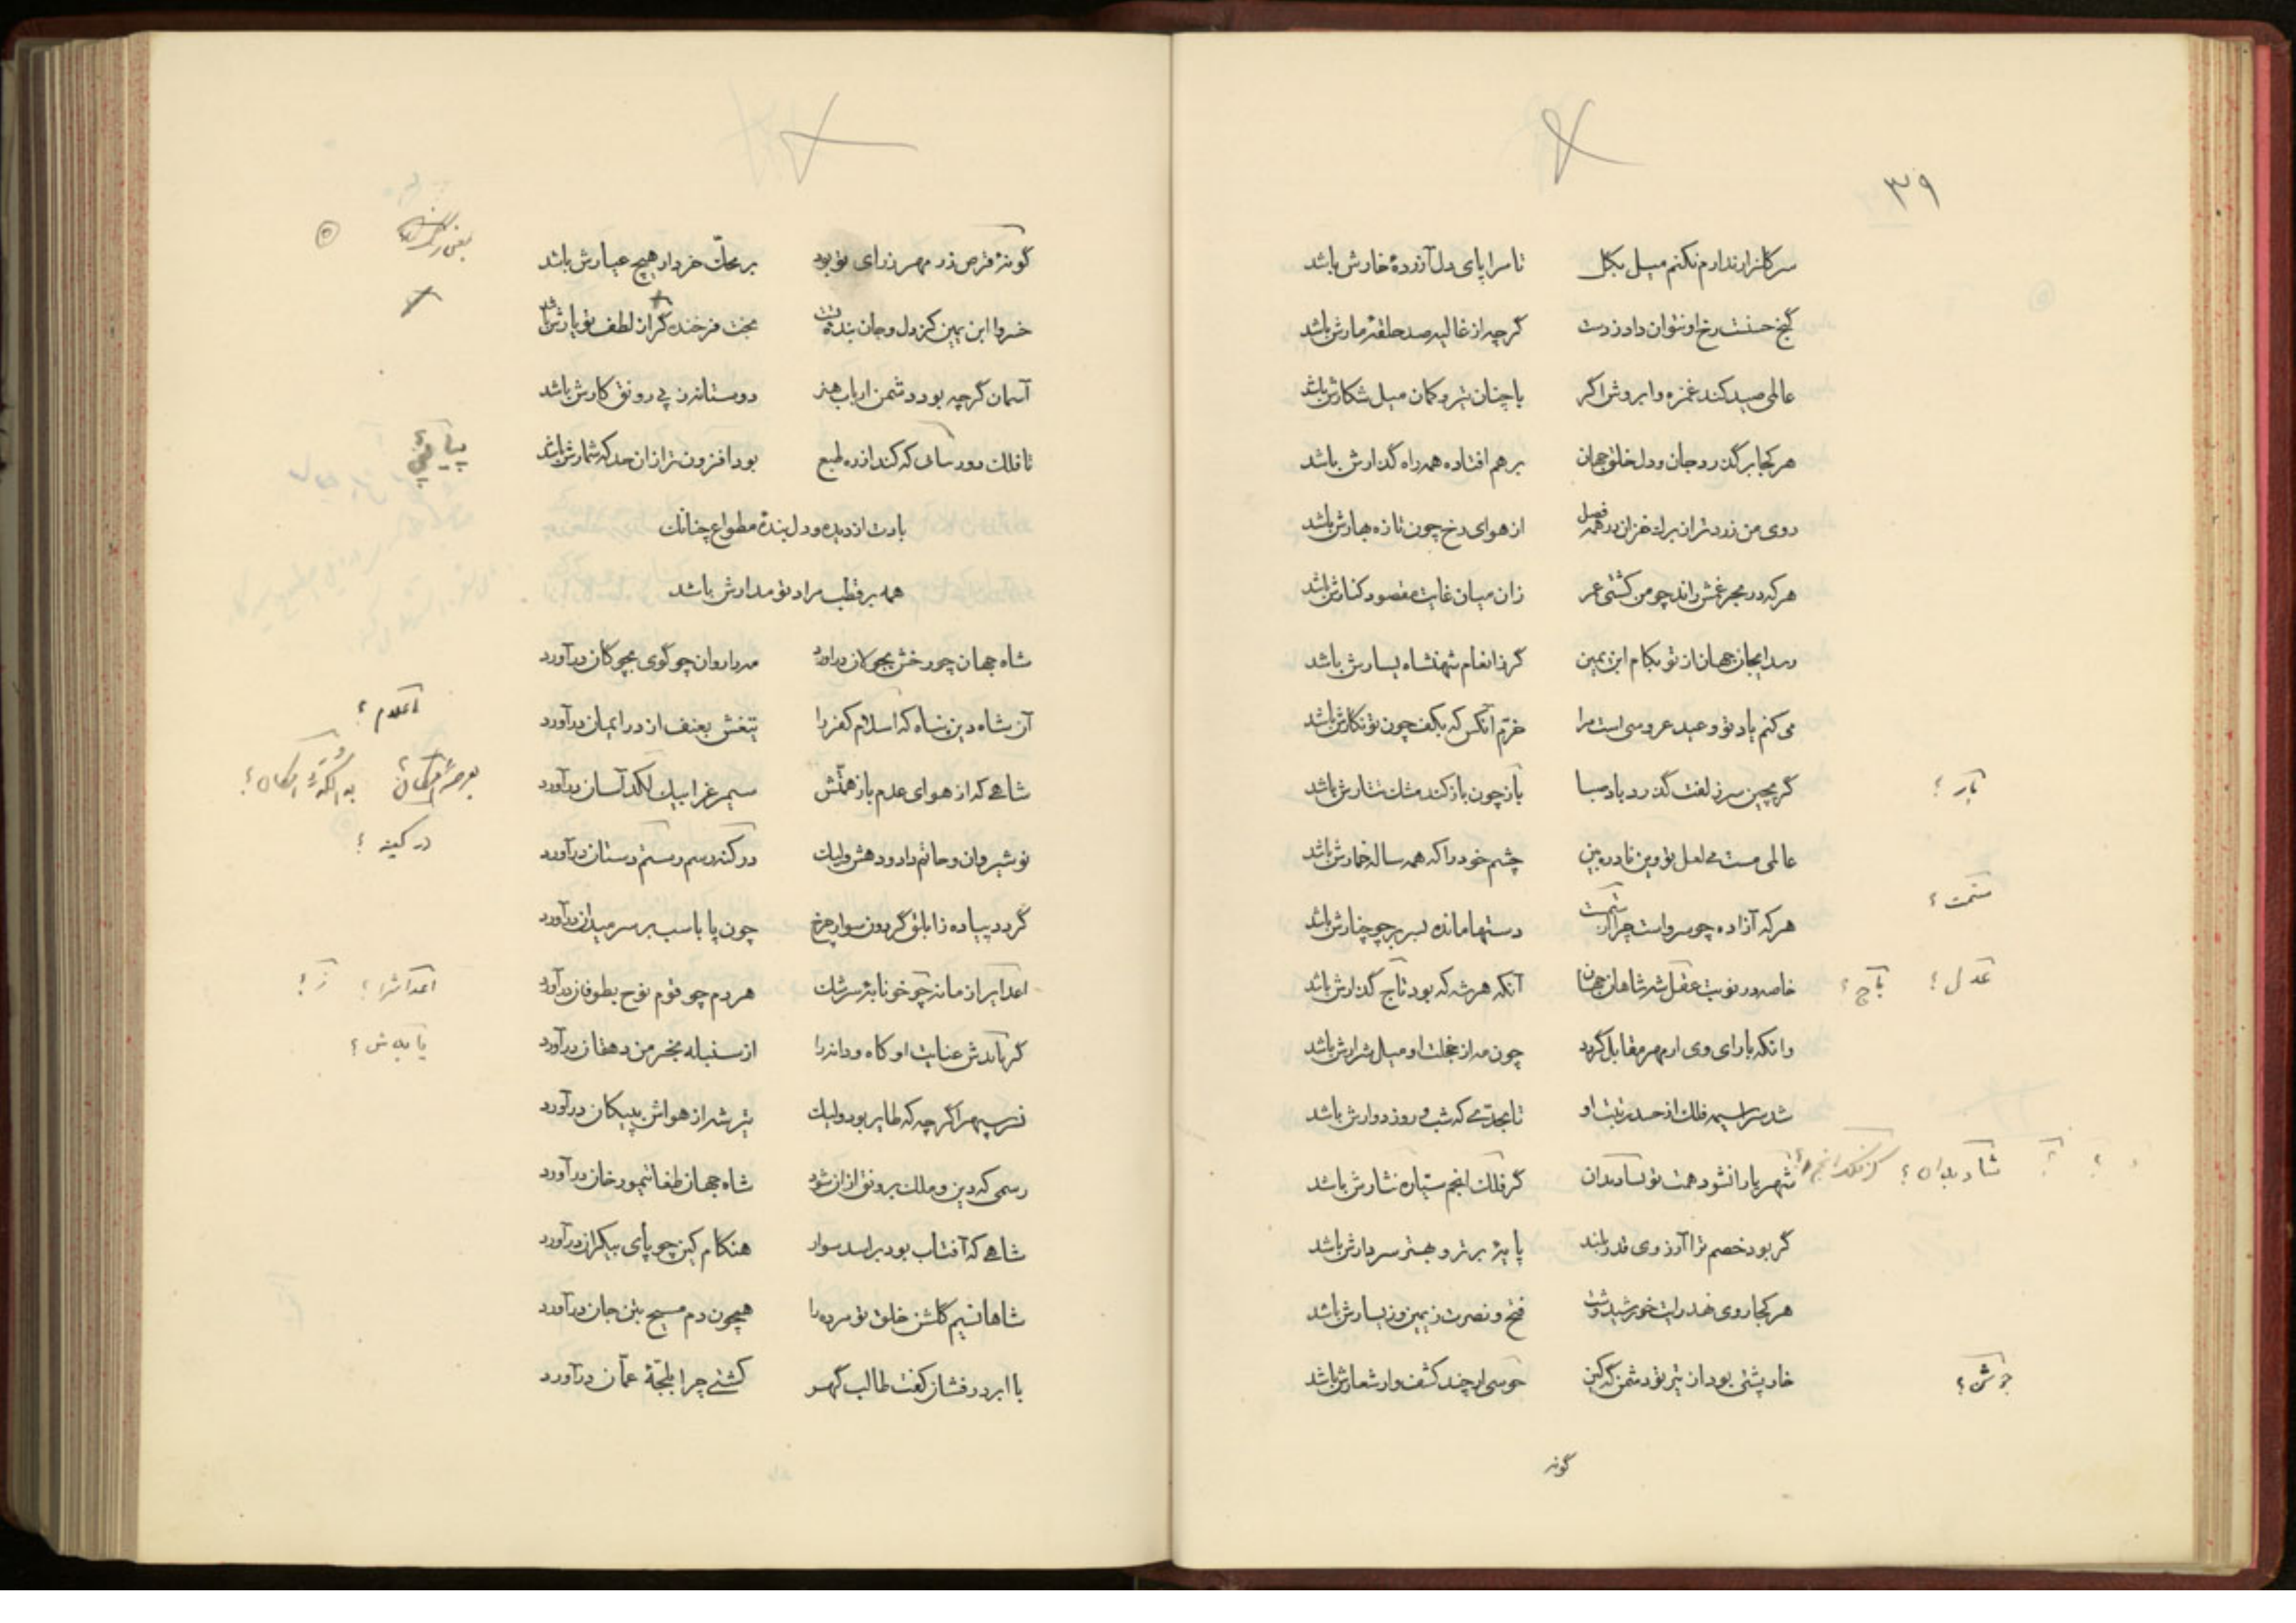 ۳۹
سر گلزار ندارم نکنم میل بگل تا سراپای دل آزردهٔ خارش باشد
گنج حسنت رخ او نتوان داد ز دست گرچه از غالیه صد حلقهٔ مارش باشد
عالمی صید کند غمزه و ابروش اگر با چنان تیر و کمان میل شکارش باشد
هر کجا برگذرد جان و دل خلق جهان بر هم افتاده همه راه گذارش باشد
روی من زرد تر از برگ خزان در همه فصل از هوای رخ چون تازه بهارش باشد
هر که در بحر غمش راند چو من کشتی عمر زان میان غایت مقصود کنارش باشد
رسد ایجان جهان از تو بکام ابن یمین گر ز انعام شهنشاه یسارش باشد
می کنم یاد تو و عید عروسی است مرا خرّم آنکس که بکف چون تو نگارش باشد
گر بچین سر زلفت گذرد باد صبا باز چون باز کند مشک نثارش باشد
بار ؟
عالمی مست می لعل تو وین نادره بین چشم خود را که همه ساله خمارش باشد
هر که آزاده چو سرو است چرا از دستها مانده بسر بر چو چنارش باشد
خاصه در نوبت عقل شه شاهان جهان آنکه هر شه که بود تاج گذارش باشد
عدل ؟ باج ؟
وانکه با رای وی ار مهر مقابل گردد چون مه از خجلت او میل شرارش باشد
شد سراسیمه فلک از حسد رتبت او تا بحدّی که شب و روز دوارش باشد
شهریارا نشود همت تو شاد بدان گر فلک انجم سیّاره نثارش باشد
شاد بدان ؟
گر بود خصم ترا آرزوی قدر بلند پایهٔ برتر و بهتر سر دارش باشد
هر کجا روی نهد رایت خورشیدوشت فتح و نصرت ز یمین وز یسارش باشد
خار پشتی بود از تیر تو دشمن گه کین جوشن ار چند کشف وار شعارش باشد
جوشن ؟
گونه
گونهٔ قرص زر مهر ز رای تو بود بر محکّ خرد ار هیچ عیارش باشد
خسروا ابن یمین کز دل و جان بندهٔ تست بخت فرخنده گر از لطف تو یارش باشد
آسمان گرچه بود دشمن ارباب هنر دوستانه ز پی رونق کارش باشد
تا فلک دور بسالی که کند از ره طبع بود افزون تر از آن حد که شمارش باشد
بادت از دیده و دل بندهٔ مطواع چنانک
همه بر قطب مراد تو مدارش باشد
شاه جهان چو رخش بجولان درآورد مه را روان چو گوی بچوگان درآورد
آن شاه دین پناه که اسلام کفر را تیغش بعنف از در ایمان درآورد
شاهی که از هوای عدم باز همّتش سیمرغ را بیک لگد آسان درآورد
نوشیروان و حاتم داد و دهش ولیک در کنه رسم رستم دستان درآورد
در کینه ؟
گردد پیاده ز ابلق گردون سوار چرخ چون پا باسب بر سر میدان درآورد
اعدا بر از مانه چو خونابهٔ سرشک هر دم چو قوم نوح بطوفان درآورد
اعداش را ؟ ز ؟
گر باندش عنایت او کاه و دانه را از سنبله بخرمن دهقان درآورد
نسر سپهر اگرچه که طایر بود ولیک تیر شه از هواش بپیکان درآورد
رسمی که دین و ملک برونق از آن شود شاه جهان طغا تیمور خان درآورد
شاهی که آفتاب بود بر اسد سوار هنگام کین چو پای بیکران درآورد
شاها نسیم گلشن خلق تو مرده را همچون دم مسیح بتن جان درآورد
با ابر درفشان کفت طالب گهر کشتی چرا بلجّهٔ عمّان درآورد